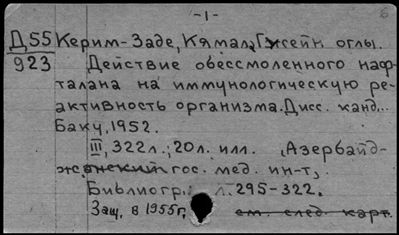 -1-
Д55 Керим-Заде, Кямал Гусейн оглы.
923 Действие обессмоленного наф-
талана на иммунологическую ре-
активность организма. Дисс. канд..
Баку, 1952.
III, 322л.; 20л. илл. (Азербайд-
жанский гос. мед. ин-т),
Библиогр.: л. 295-322.
Защ. в 1955г.
см. след. карт.